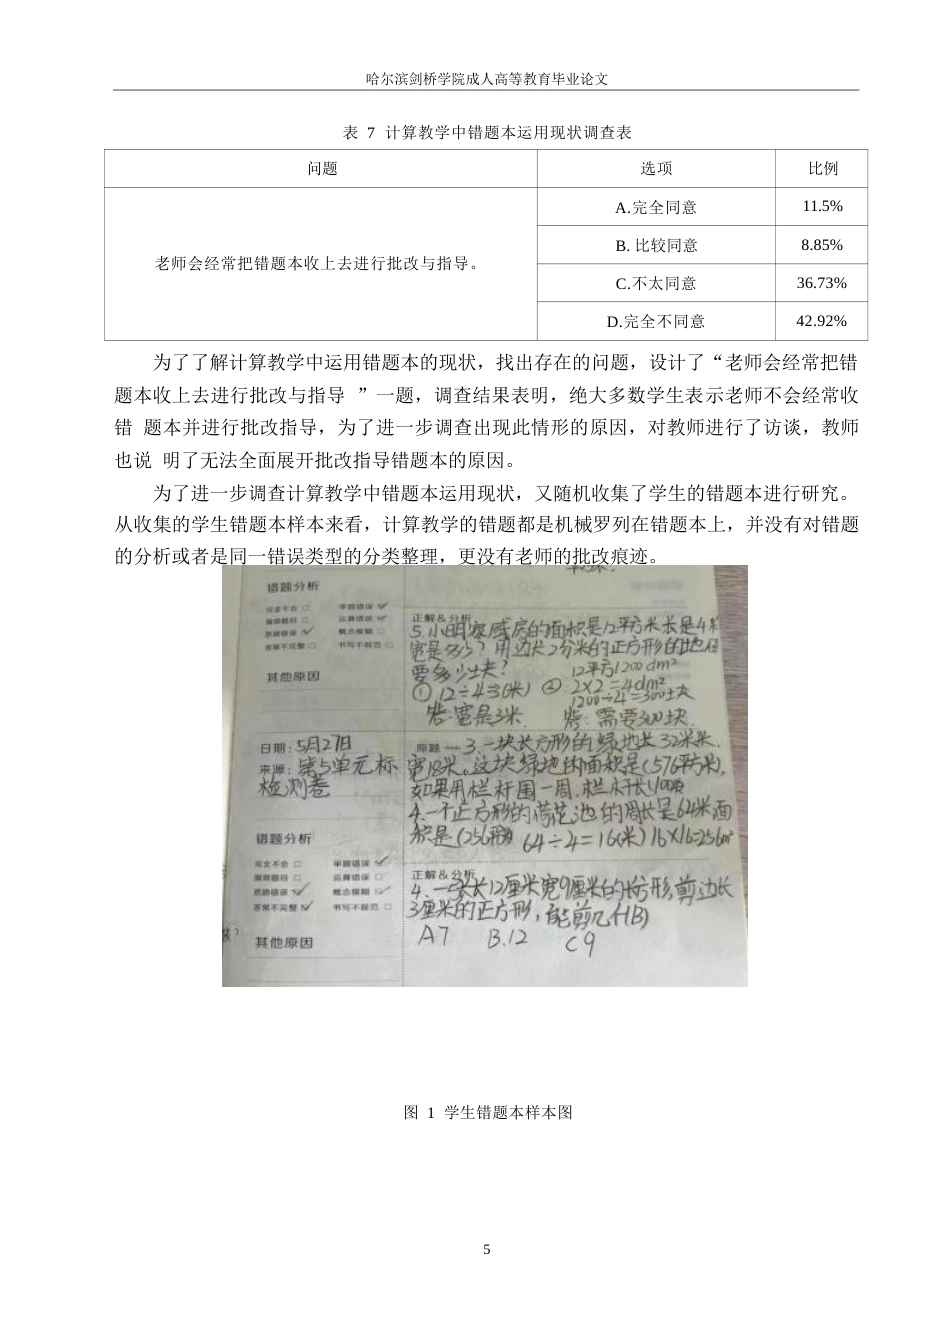 哈尔滨剑桥学院成人高等教育毕业论文
表 7 计算教学中错题本运用现状调查表
问题 选项 比例
老师会经常把错题本收上去进行批改与指导。
A.完全同意 11.5%
B. 比较同意 8.85%
C.不太同意 36.73%
D.完全不同意 42.92%
为了了解计算教学中运用错题本的现状，找出存在的问题，设计了“老师会经常把错
题本收上去进行批改与指导 ”一题，调查结果表明，绝大多数学生表示老师不会经常收
错 题本并进行批改指导，为了进一步调查出现此情形的原因，对教师进行了访谈，教师
也说 明了无法全面展开批改指导错题本的原因。
为了进一步调查计算教学中错题本运用现状，又随机收集了学生的错题本进行研究。
从收集的学生错题本样本来看，计算教学的错题都是机械罗列在错题本上，并没有对错题
的分析或者是同一错误类型的分类整理，更没有老师的批改痕迹。
错题分析
完全不会 审题错误
偏难题目 运算错误
思路错误 概念模糊
答案不完整 书写不规范
其他原因
正解&分析
5.小明家厨房的面积是12平方米长是4米
宽是多少？用边长2分米的正方形的地砖
要多少块？ 12平方1200dm²
① 12÷4=3(米) ② 2×2=4dm²
1200÷4=300块
答:宽是3米 答:需要300块
日期:5月27日
来源:第5单元标
检测卷
原题 3.一块长方形的绿地长32米
宽18米。这块绿地的面积是(576平方米),
如果用栏杆围一周,栏杆长(100米)
4.一个正方形的荷花池的周长是64米面
积是(256平方米) 64÷4=16(米) 16×16=256m²
错题分析
完全不会 审题错误
偏难题目 运算错误
思路错误 概念模糊
答案不完整 书写不规范
其他原因
正解&分析
4.一张长12厘米宽9厘米的长方形,剪边长
3厘米的正方形,能剪几个(B)
A7 B.12 C9
图 1 学生错题本样本图
5